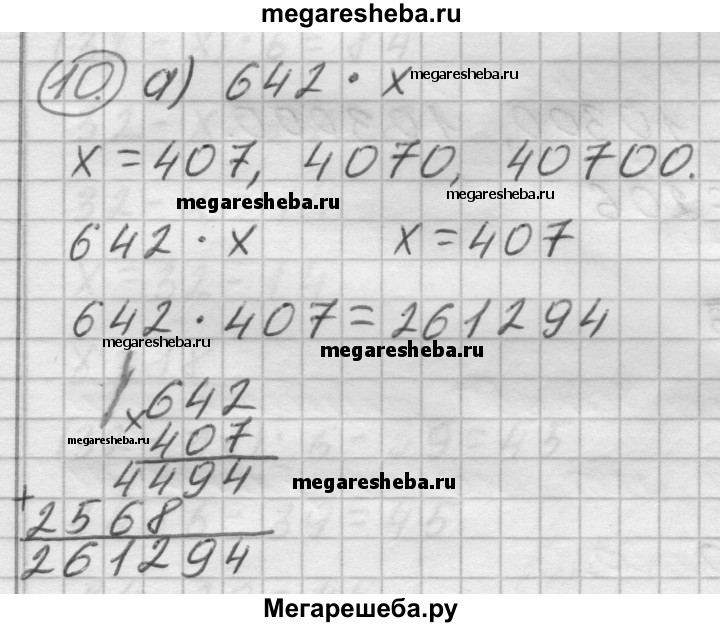 megaresheba.ru
10. а) 642 · x megaresheba.ru
x = 407, 4070, 40700.
megaresheba.ru megaresheba.ru
642 · x x = 407
642 · 407 = 261294
megaresheba.ru megaresheba.ru
× 642
407
megaresheba.ru
4494
megaresheba.ru
+ 2568
261294
Мегарешеба.ру